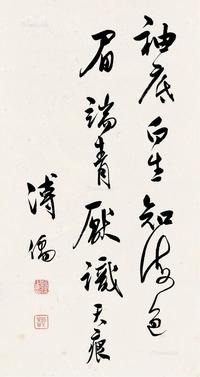 袖底白生知海色
眉端青厭識天痕
溥儒